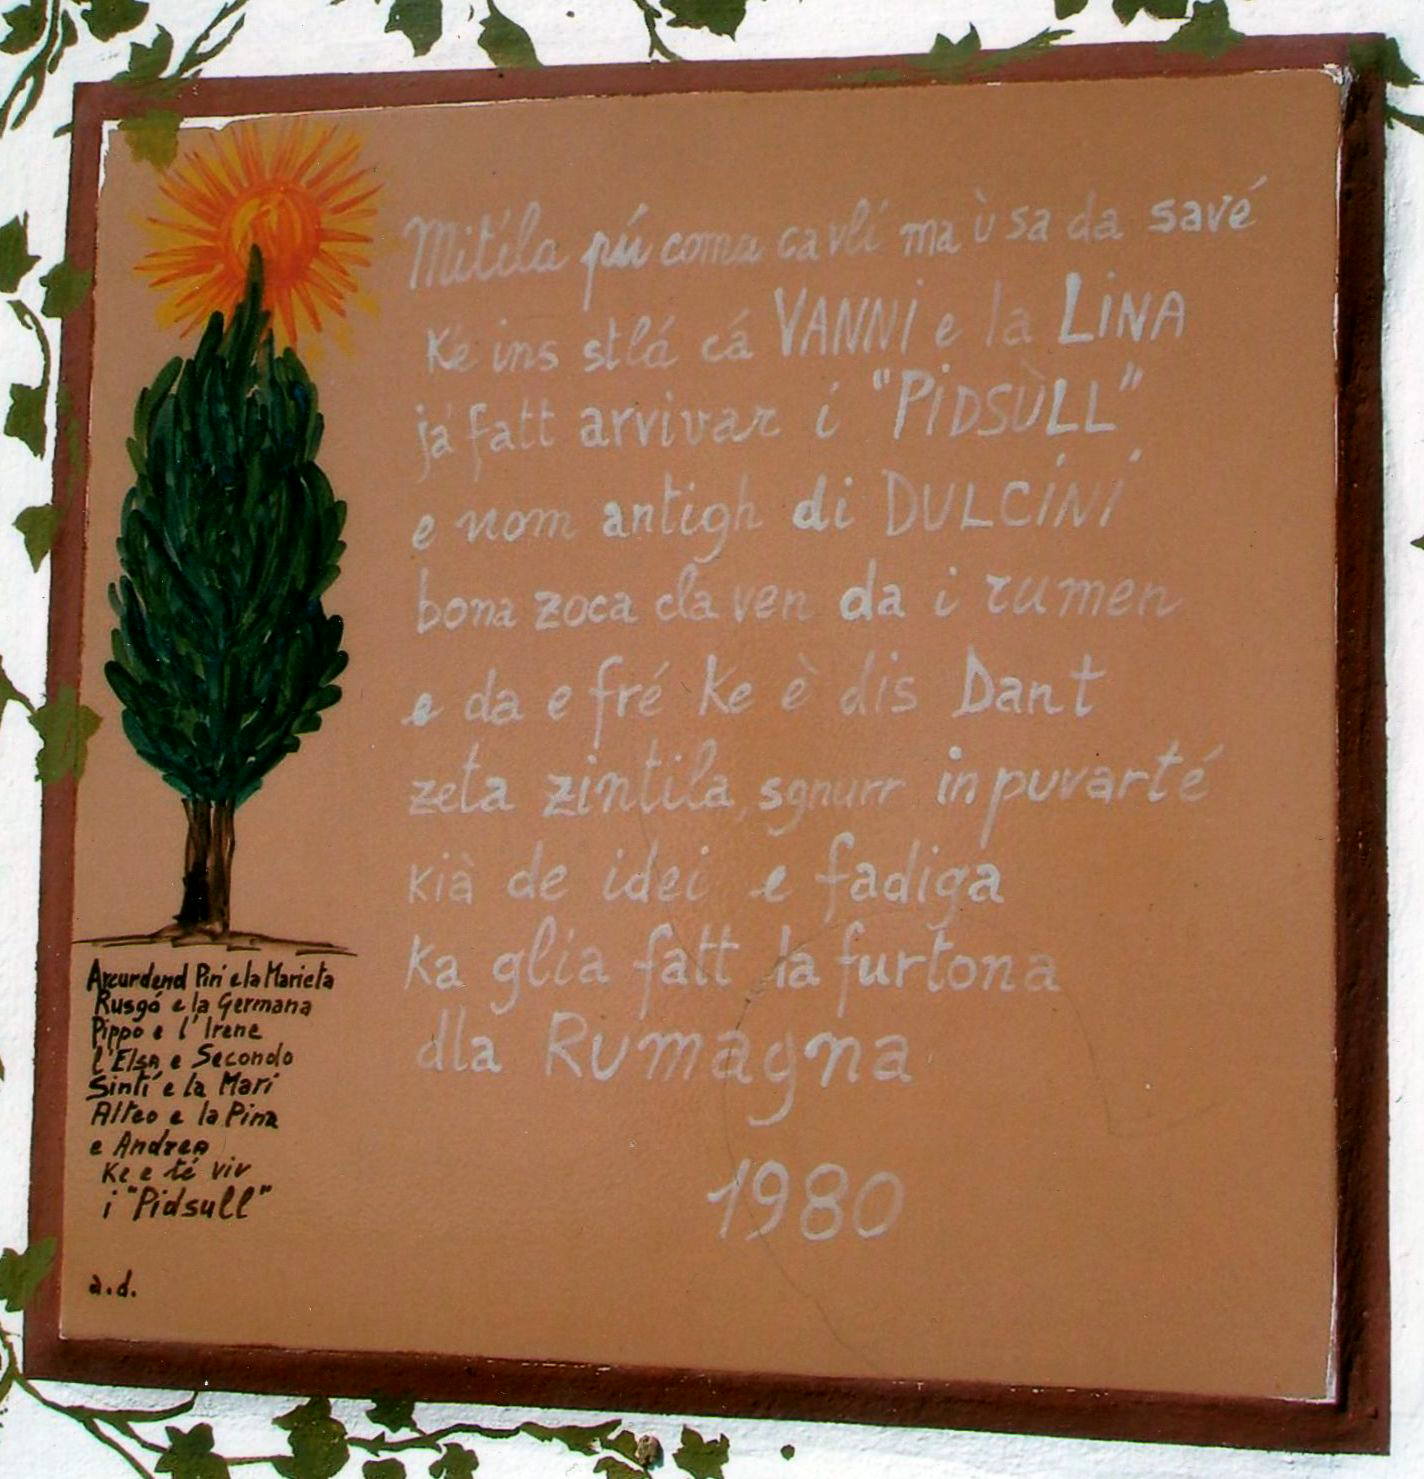 Mitíla pú coma cavlí ma ù sa da savé
Ké ins stlá cá VANNI e la LINA
já fatt arvivar i "PIDSÙLL"
e nom antigh di DULCINI
bona zoca cla ven da i rumen
e da e fré ke è dis Dant
zeta zintila, sgnurr in puvarté
kià de idei e fadiga
ka glia fatt la furtona
dla Rumagna
1980
Arcurdend Piri e la Marieta
Rusgó e la Germana
Pippo e l'Irene
l'Elsa e Secondo
Sintí e la Mari
Alteo e la Pina
e Andrea
Ke e té viv
i "Pidsull"
a.d.